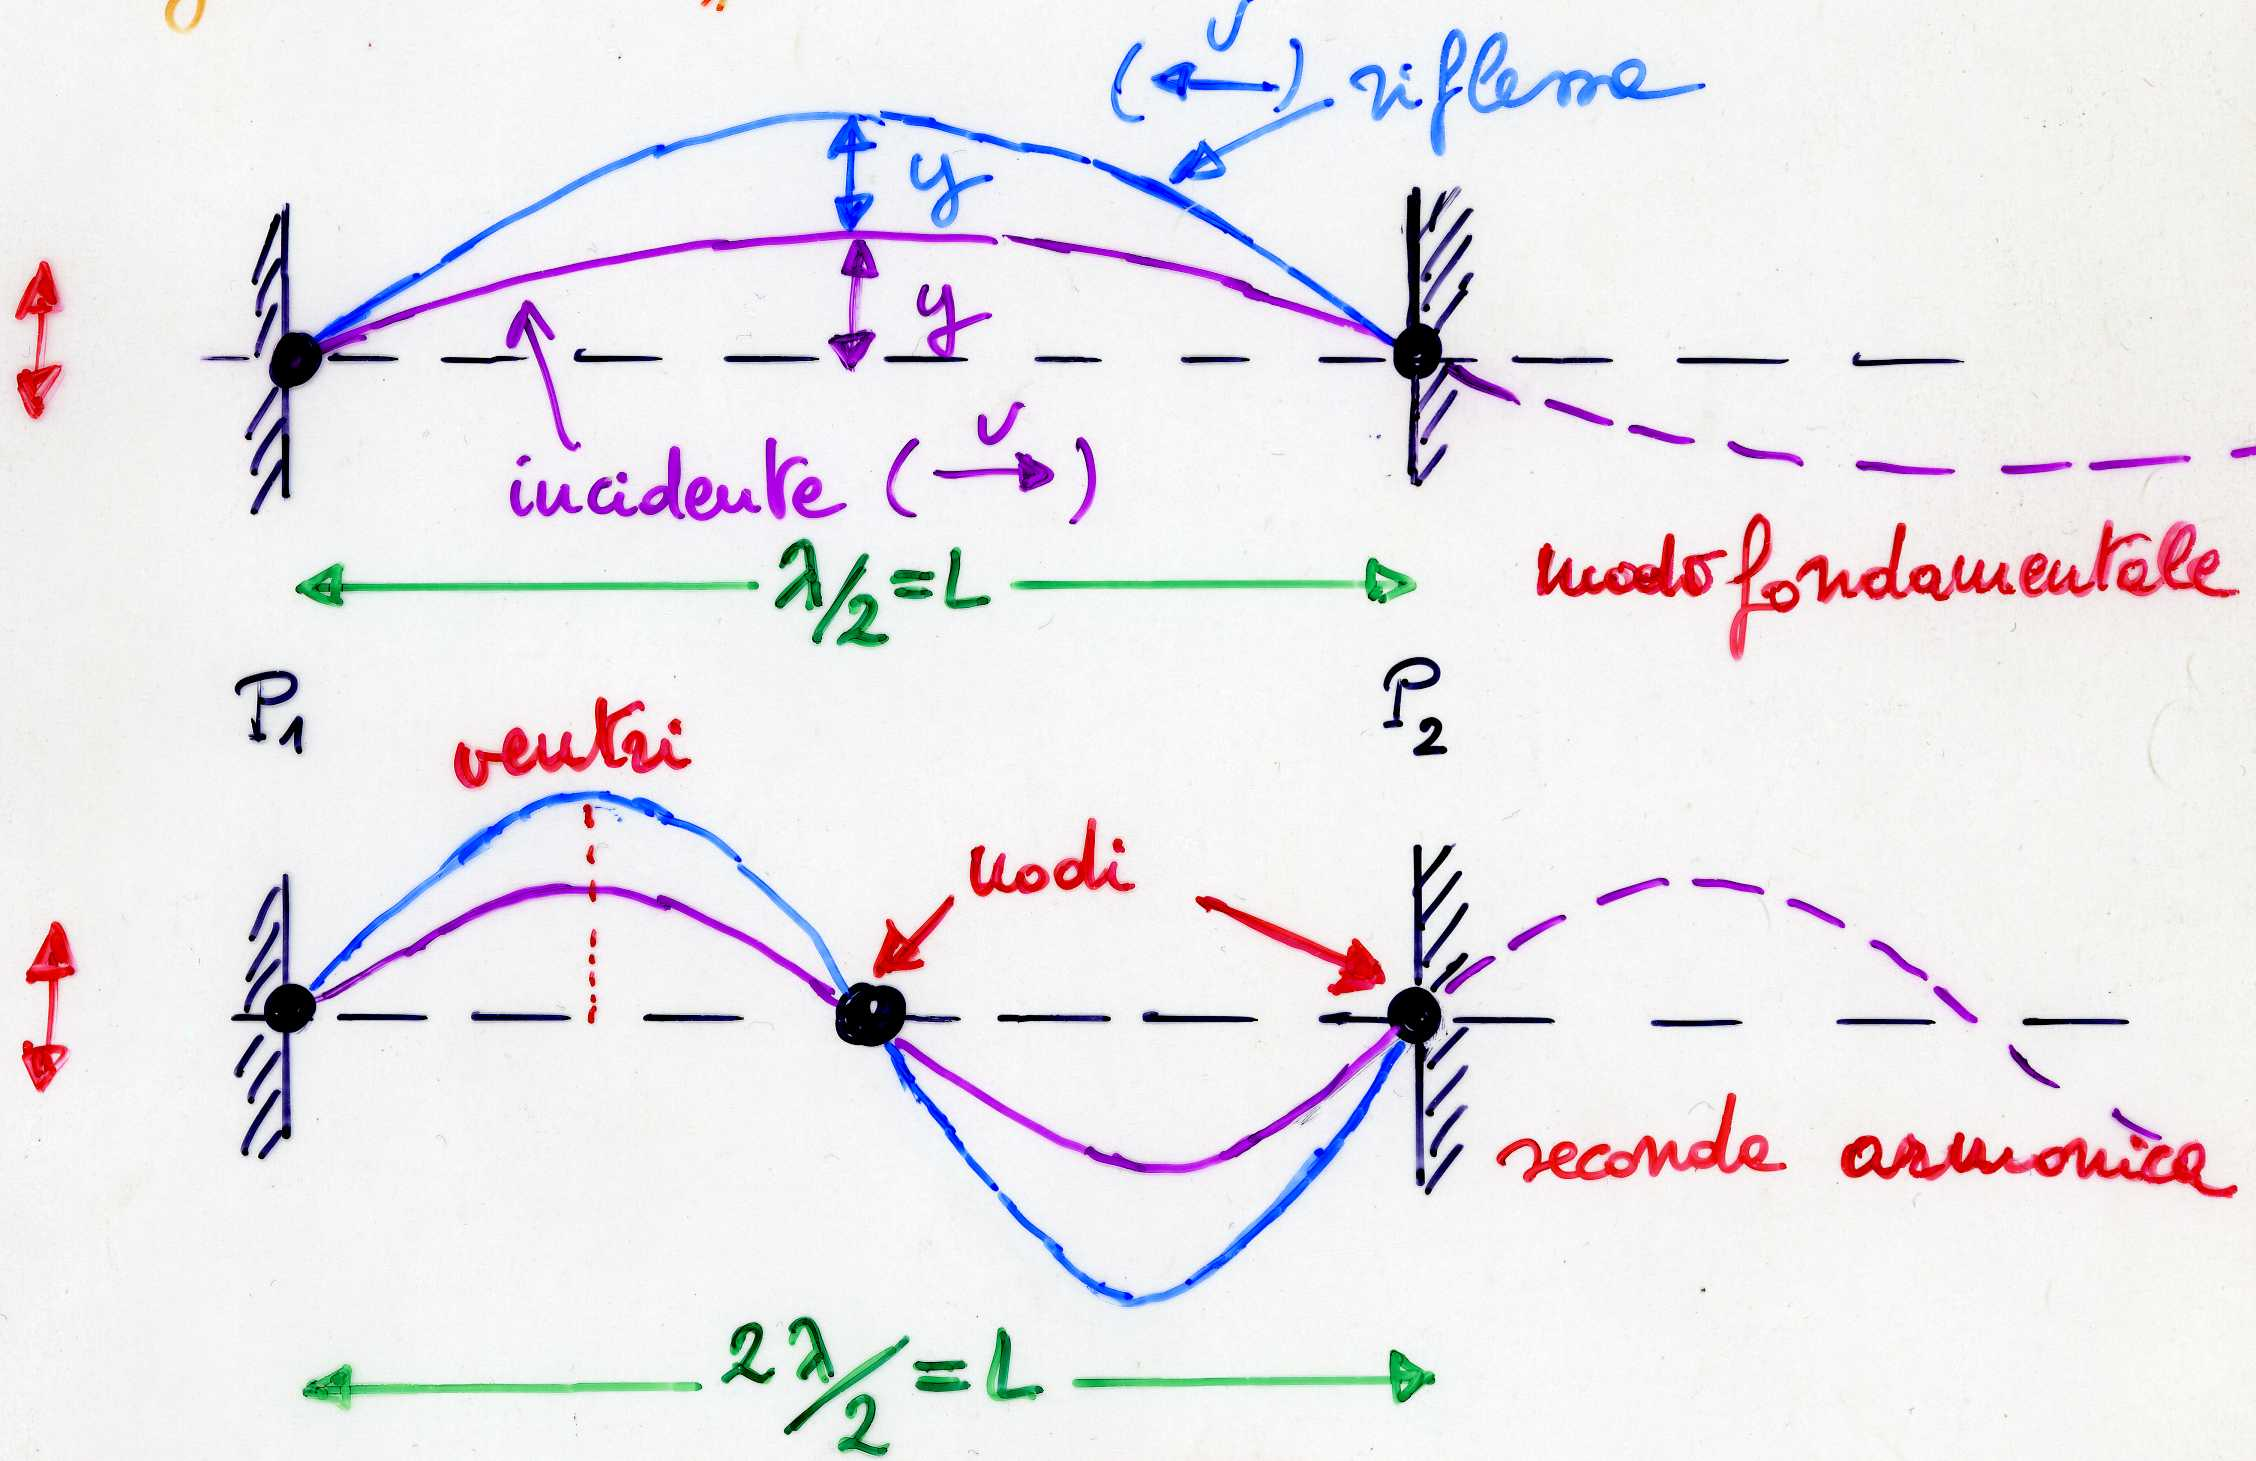 v
( ← ) riflessa
y
y
incidente ( → )
v
λ/2 = L
modo fondamentale
P1
P2
ventri
nodi
seconda armonica
2λ/2 = L